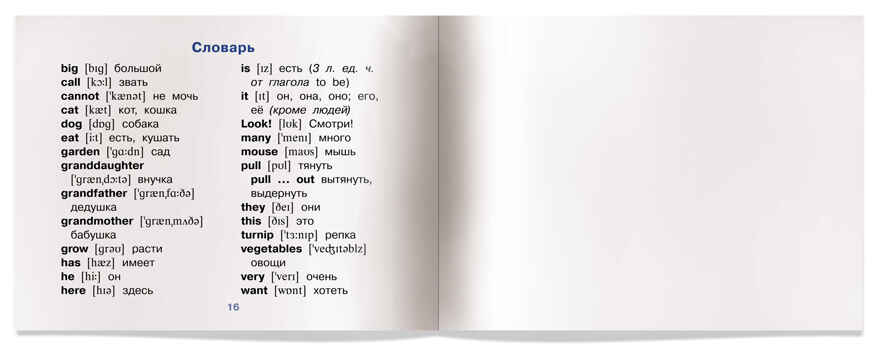 Словарь
big [bɪg] большой
call [kɔ:l] звать
cannot ['kænət] не мочь
cat [kæt] кот, кошка
dog [dɒg] собака
eat [i:t] есть, кушать
garden ['gɑ:dn] сад
granddaughter
['græn,dɔ:tə] внучка
grandfather ['græn,fɑ:ðə]
дедушка
grandmother ['græn,mʌðə]
бабушка
grow [grəʊ] расти
has [hæz] имеет
he [hi:] он
here [hɪə] здесь
is [ɪz] есть (3 л. ед. ч.
от глагола to be)
it [ɪt] он, она, оно; его,
её (кроме людей)
Look! [lʊk] Смотри!
many ['menɪ] много
mouse [maʊs] мышь
pull [pʊl] тянуть
pull ... out вытянуть,
выдернуть
they [ðeɪ] они
this [ðɪs] это
turnip ['tɜ:nɪp] репка
vegetables ['veʤɪtəblz]
овощи
very ['verɪ] очень
want [wɒnt] хотеть
16